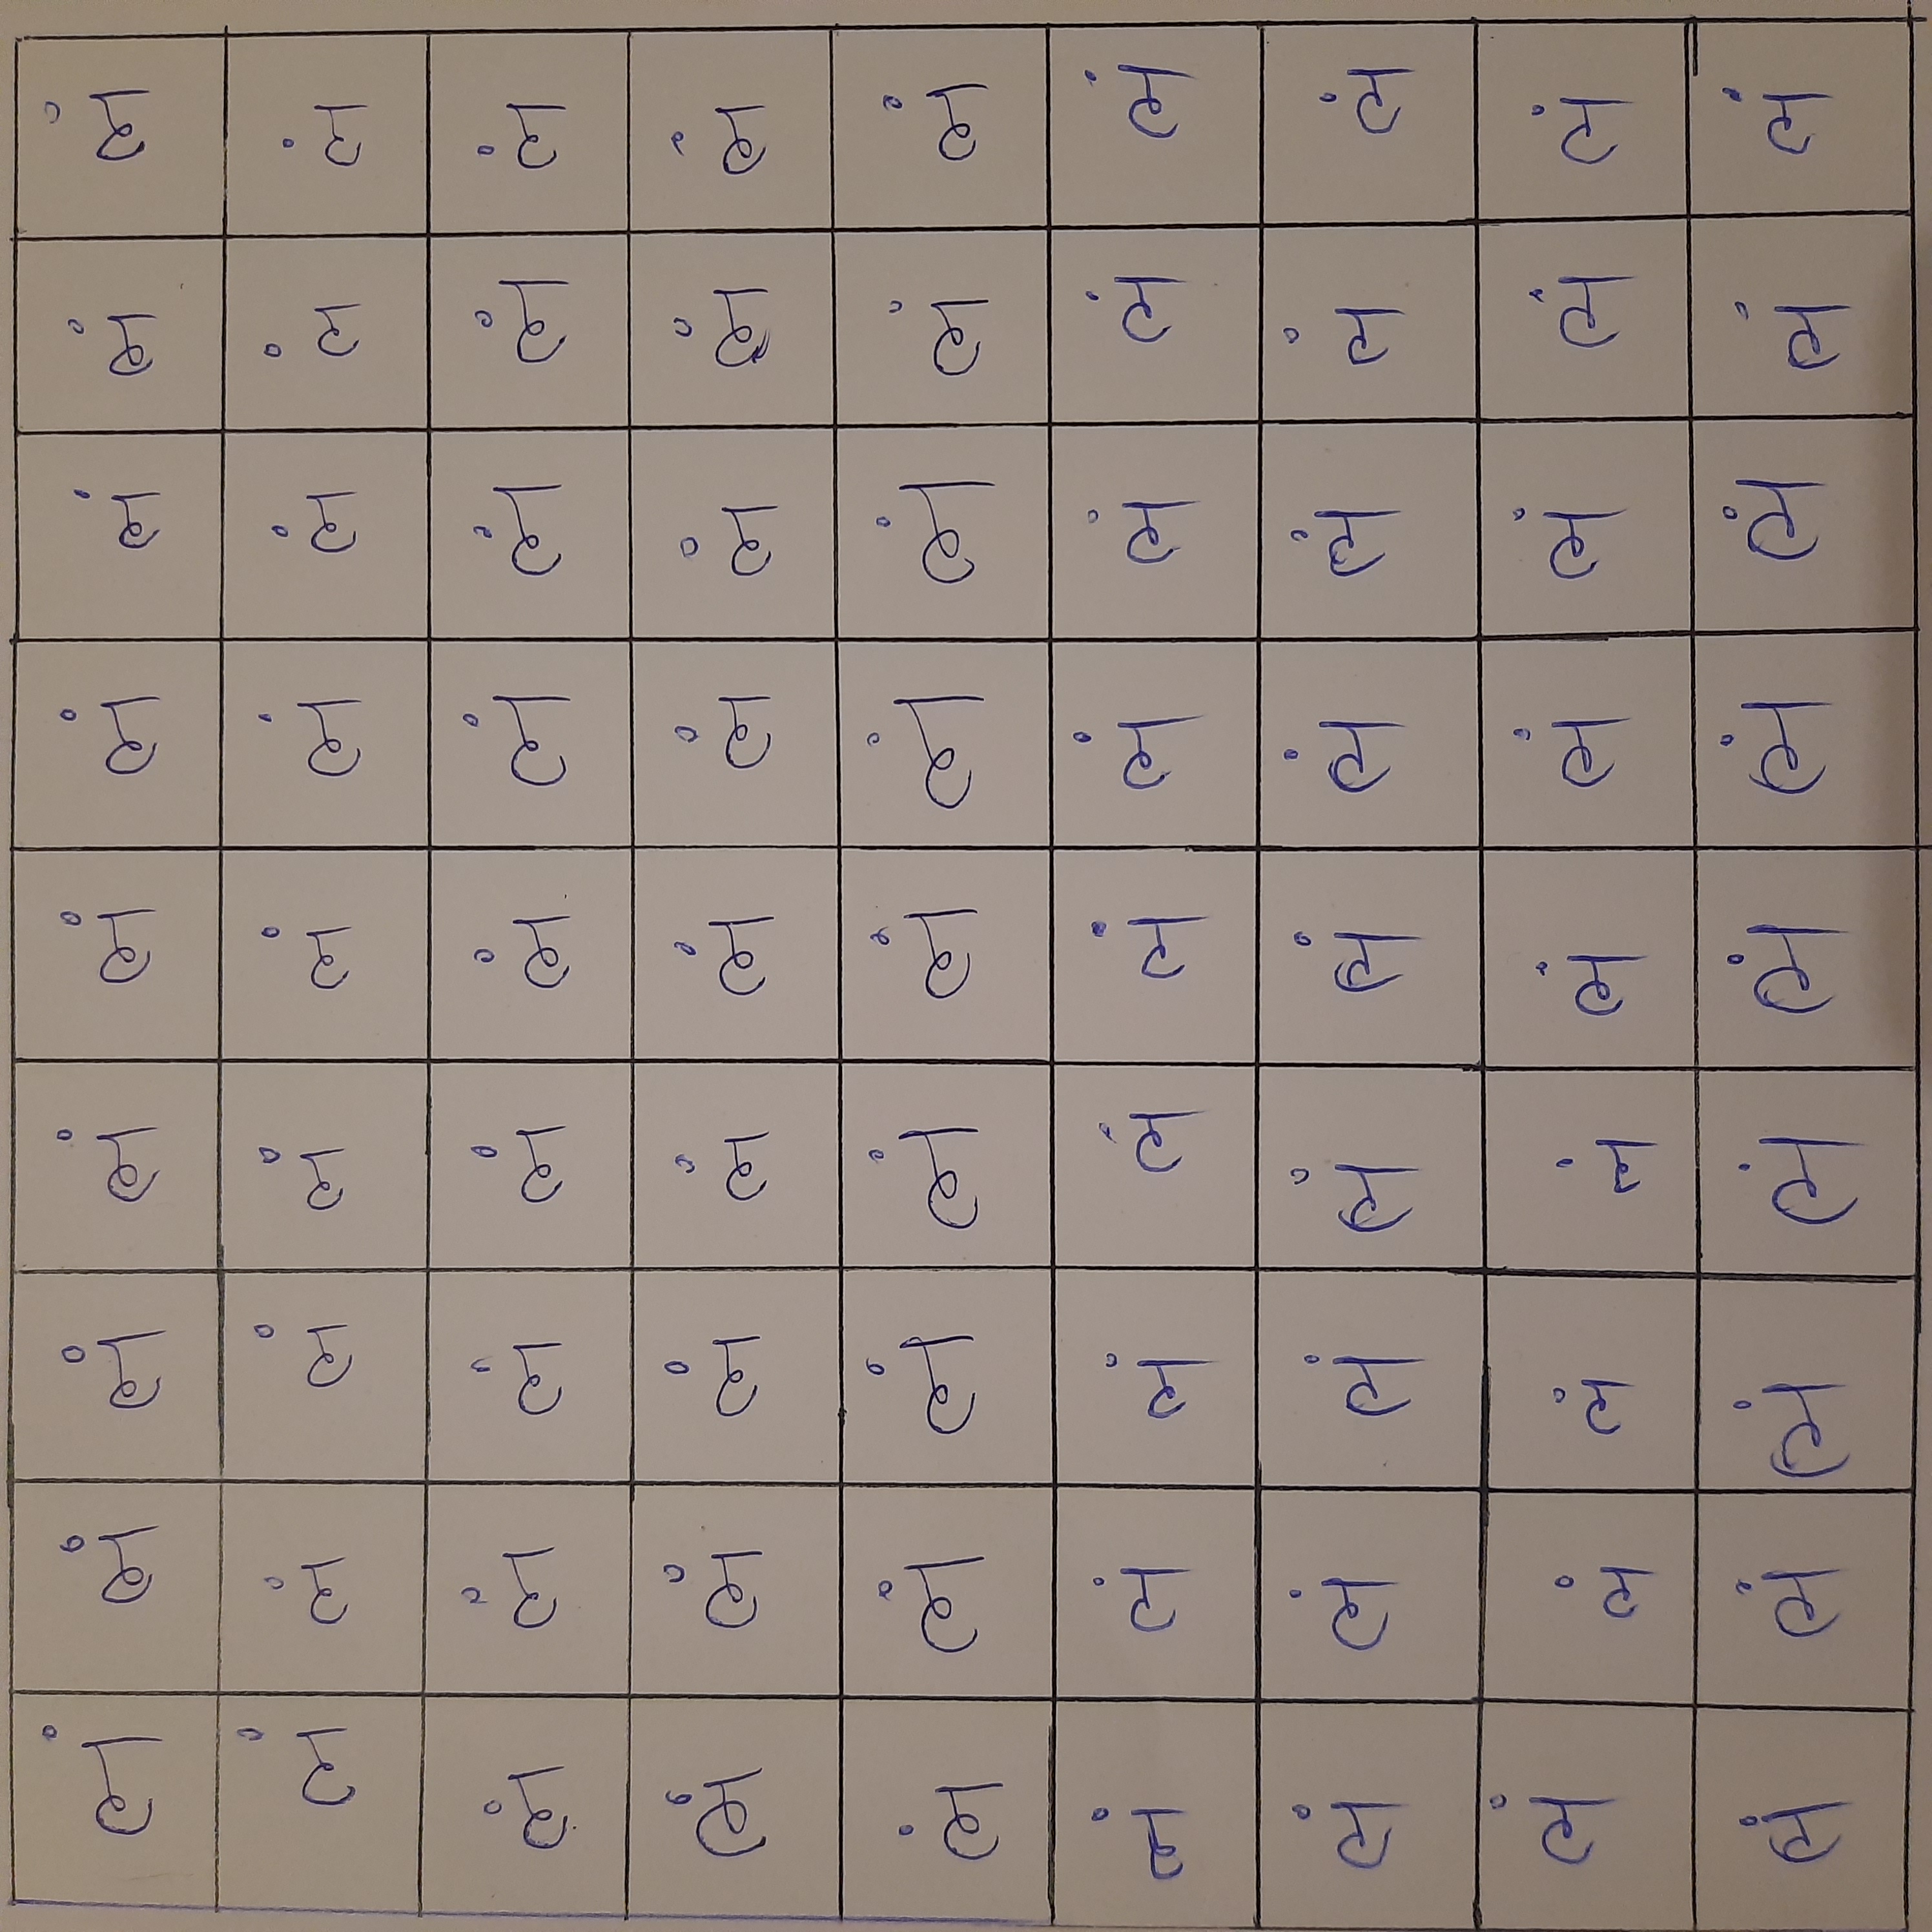 ભં ભં ભં ભં ભં ભં ભં ભં ભં
ભં ભં ભં ભં ભં ભં ભં ભં ભં
ભં ભં ભં ભં ભં ભં ભં ભં ભં
ભં ભં ભં ભં ભં ભં ભં ભં ભં
ભં ભં ભં ભં ભં ભં ભં ભં ભં
ભં ભં ભં ભં ભં ભં ભં ભં ભં
ભં ભં ભં ભં ભં ભં ભં ભં ભં
ભં ભં ભં ભં ભં ભં ભં ભં ભં
ભં ભં ભં ભં ભં ભં ભં ભં ભં